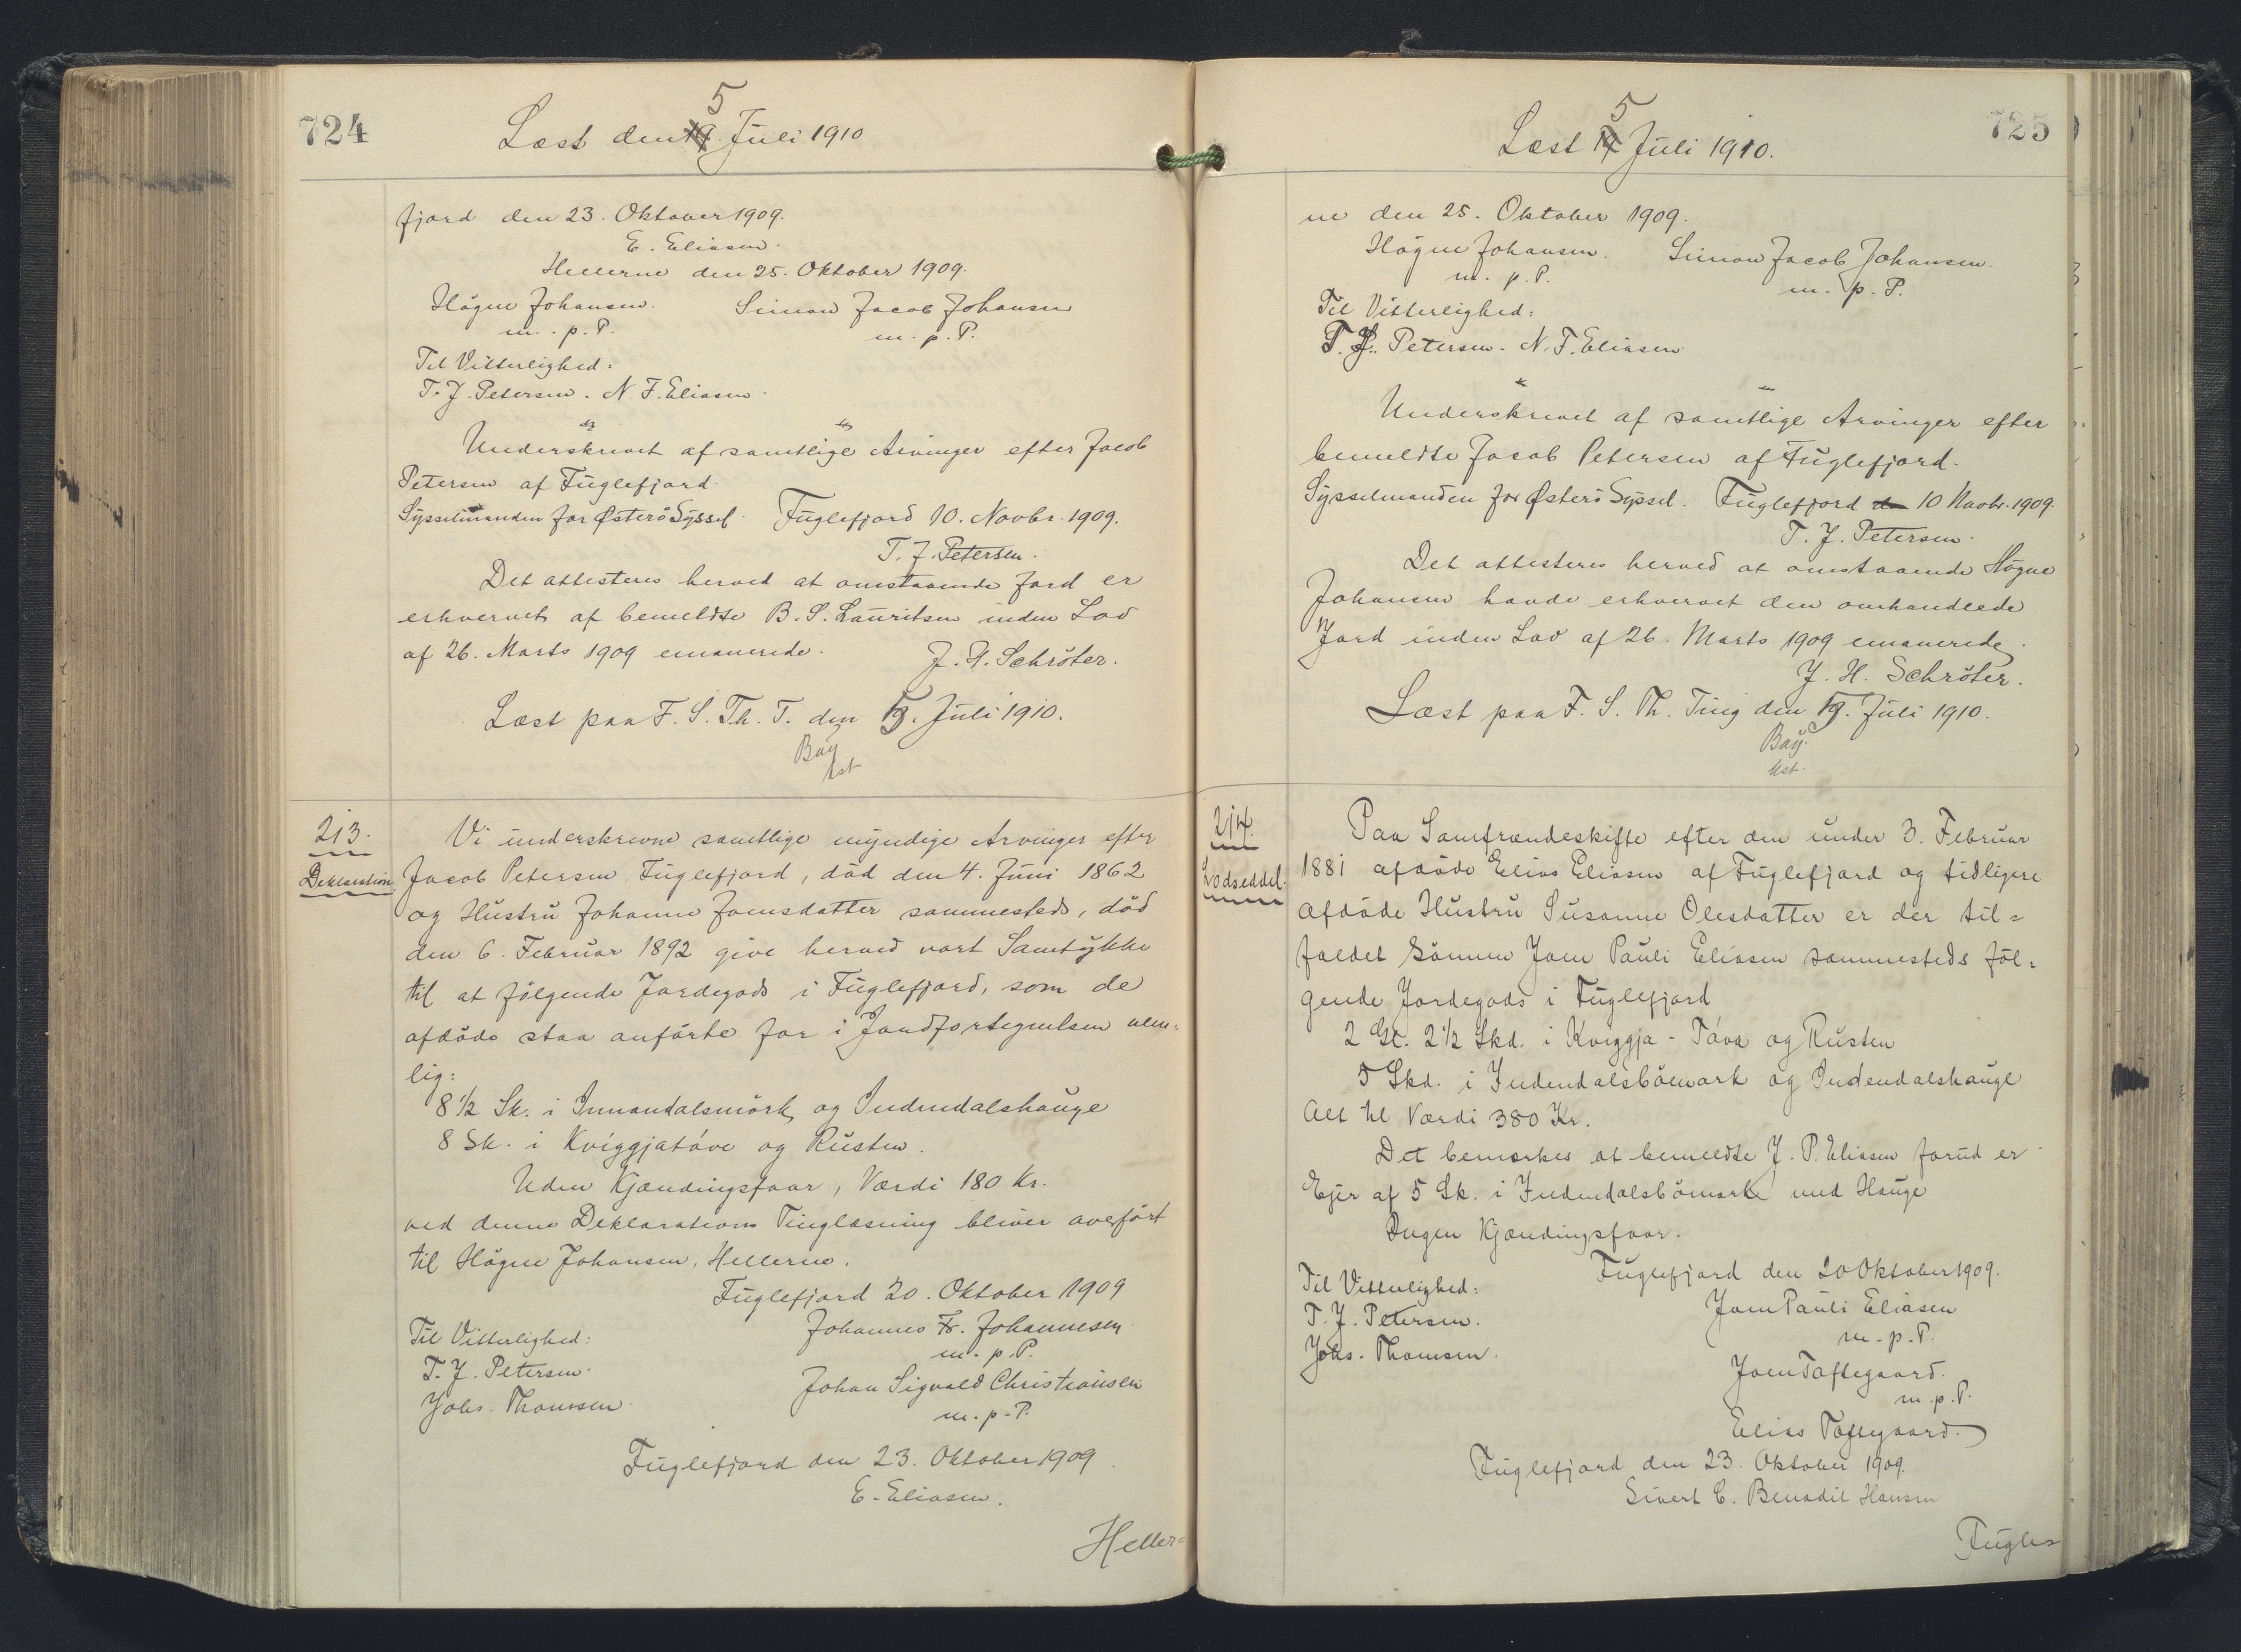 724
5
Læst den 19. Juli 1910
fjord den 23. Oktober 1909.
E. Eliasen.
Hellerne den 25. Oktober 1909.
Högne Johansen. Simon Jacob Johansen
m. p. P. m. p. P.
Til Vitterlighed:
T. J. Petersen. N. F. Eliasen.
Underskrevet af samtlige Arvinger efter Jacob
Petersen af Fuglefjord.
Sysselmanden for Østerö Syssel. Fuglefjord 10. Novbr. 1909.
T. J. Petersen.
Det attesteres herved at omstaaende Jord er
erhvervet af bemeldte B. S. Lauritsen inden Lov
af 26. Marts 1909 emanerede.
J. H. Schröter.
Læst paa F. S. Th. T. den 5. Juli 1910.
Bay
kst
213.
Deklaration.
Vi underskrevne samtlige myndige Arvinger efter
Jacob Petersen Fuglefjord, död den 4. Juni 1862
og Hustru Johanne Joensdatter sammesteds, död
den 6. Februar 1892 give herved vort Samtykke
til at fölgende Jordegods i Fuglefjord, som de
afdöde staa anförte for i Jordfortegnelsen nem-
lig:
8 1/2 Sk. i Innandalsmörk og Indendalshauge
8 Sk. i Kviggjatóve og Rusten.
Uden Kjændingsfaar, Værdi 180 Kr.
ved denne Deklarations Tinglæsning bliver overfört
til Högne Johansen, Hellerne.
Fuglefjord 20. Oktober 1909
Til Vitterlighed: Johannes Fr. Johannesen
m. p. P.
T. J. Petersen. Johan Sigvald Christiansen
Johs. Thomsen. m. p. P.
Fuglefjord den 23. Oktober 1909.
E. Eliasen.
Heller=
725
5
Læst 19 Juli 1910.
ne den 25. Oktober 1909.
Högne Johansen. Simon Jacob Johansen.
m. p. P. m. p. P.
Til Vitterlighed:
T. J. Petersen. N. F. Eliasen
Underskrevet af samtlige Arvinger efter
bemeldte Jacob Petersen af Fuglefjord.
Sysselmanden for Østerö Syssel. Fuglefjord 10 Novbr. 1909.
T. J. Petersen.
Det attesteres herved at omstaaende Högne
Johansen havde erhvervet den omhandlede
Jord inden Lov af 26. Marts 1909 emanerede.
J. H. Schröter.
Læst paa F. S. Th. Ting den 5. Juli 1910.
Bay.
kst.
214.
Lodseddel.
Paa Samfrændeskifte efter den under 3. Februar
1881 afdöde Elias Eliasen af Fuglefjord og tidligere
afdöde Hustru Susanne Olesdatter er der til=
faldet Sönnen Joen Pauli Eliasen sammesteds föl=
gende Jordegods i Fuglefjord
2 Gl. 2 1/2 Skd. i Kviggja-Tóva og Rusten
5 Skd. i Indendalsbömark og Indendalshauge
Alt til Værdi 380 Kr.
Det bemærkes at bemeldte J. P. Eliasen forud er
Ejer af 5 Sk. i Indendalsbömark med Hauge
Ingen Kjændingsfaar.
Fuglefjord den 20 Oktober 1909.
Til Vitterlighed: Joen Pauli Eliasen
T. J. Petersen. m. p. P.
Johs. Thomsen. Joen Toftegaard.
m. p. P.
Elias Toftegaard.
Fuglefjord den 23. Oktober 1909.
Sivert C. Benadil Hansen
Fugle=